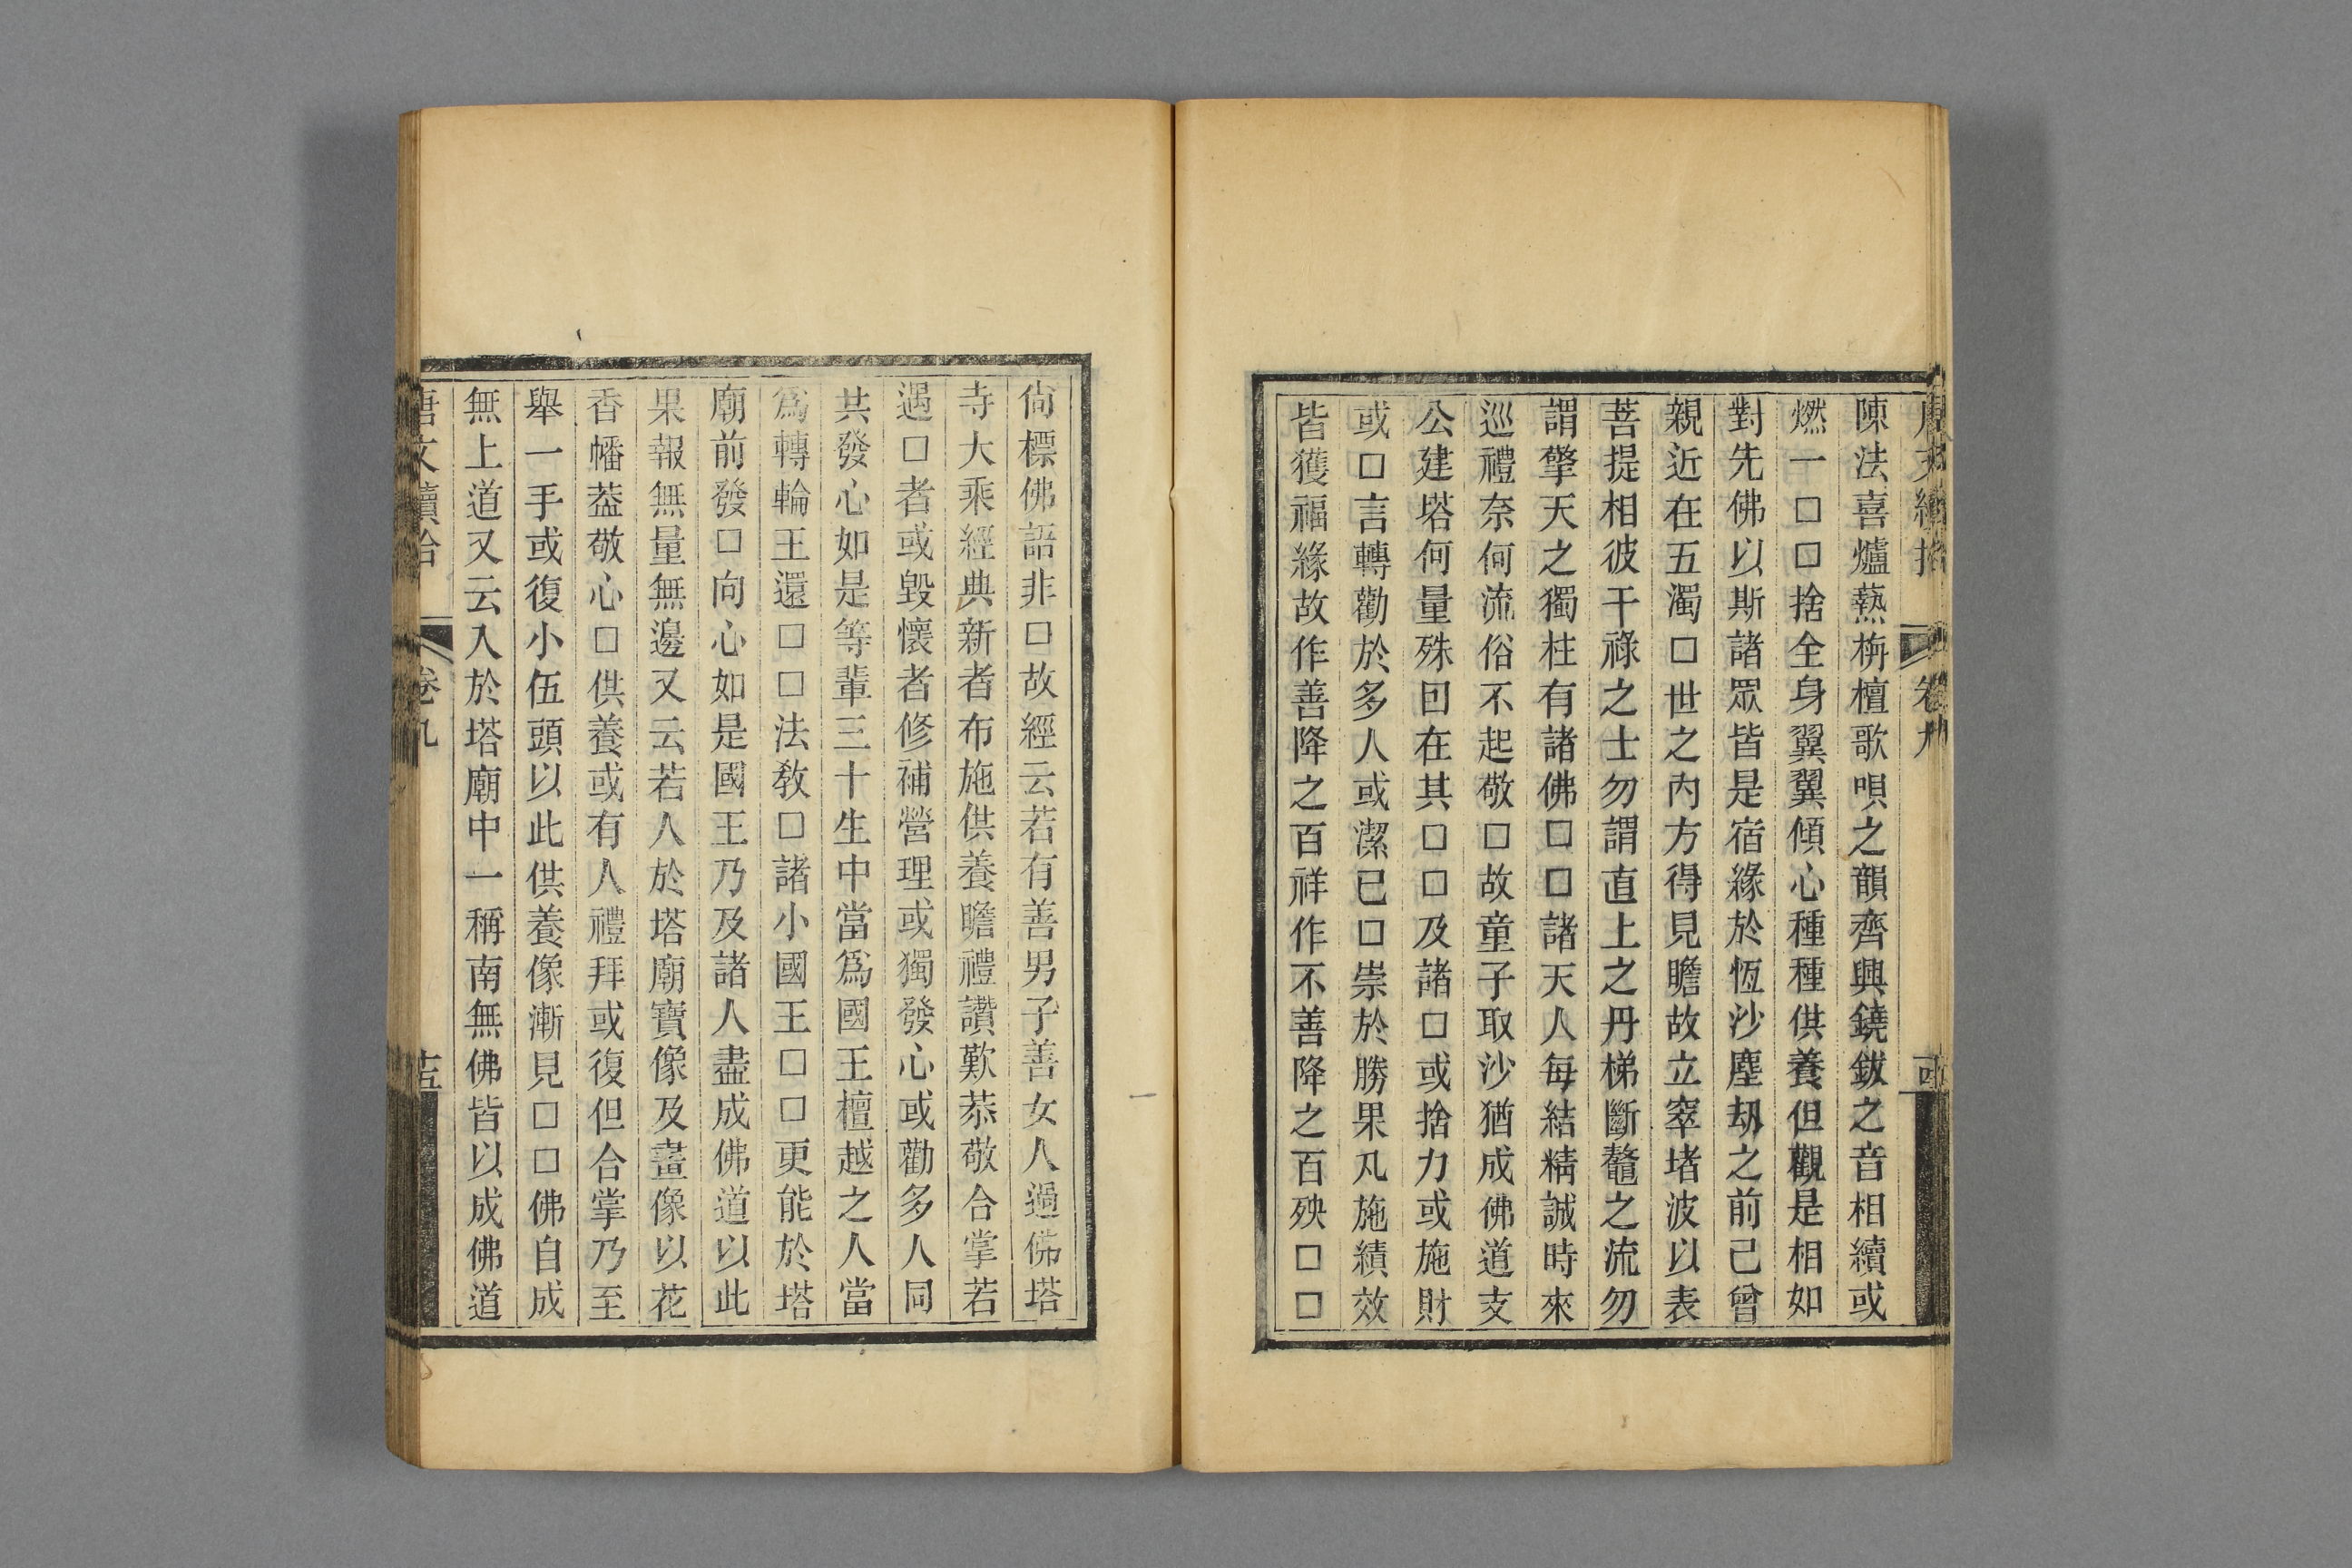 唐文續拾 卷九 
陳法喜爐爇栴檀歌唄之韻齊興鐃鈸之音相續或
燃一□□捨全身翼翼傾心種種供養但觀是相如
對先佛以斯諸眾皆是宿緣於恆沙塵劫之前已曾
親近在五濁□世之內方得見瞻故立窣堵波以表
菩提相彼干祿之士勿謂直上之丹梯斷鼇之流勿
謂擎天之獨柱有諸佛□□諸天人每結精誠時來
巡禮奈何流俗不起敬□故童子取沙猶成佛道支
公建塔何量殊因在其□□及諸□或捨力或施財
或□言轉勸於多人或潔已□崇於勝果凡施績效
皆獲福緣故作善降之百祥作不善降之百殃□□
尙標佛語非□故經云若有善男子善女人過佛塔
寺大乘經典新者布施供養瞻禮讚歎恭敬合掌若
遇□者或毀懷者修補營理或獨發心或勸多人同
共發心如是等輩三十生中當爲國王檀越之人當
爲轉輪王還□□法敎□諸小國王□□更能於塔
廟前發□向心如是國王乃及諸人盡成佛道以此
果報無量無邊又云若人於塔廟寶像及畫像以花
香幡葢敬心□供養或有人禮拜或復但合掌乃至
舉一手或復小伍頭以此供養像漸見□□佛自成
無上道又云入於塔廟中一稱南無佛皆以成佛道
唐文續拾 卷九